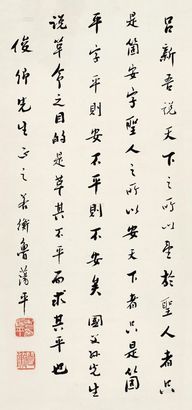 呂新吾說天下之所望於聖人者只
是箇安字聖人之所以安天下者只是箇
平字平則安不平則不安矣 國父孫先生
說革命之目的是革其不平而求其平也
俊卿先生正之 若衡魯蕩平